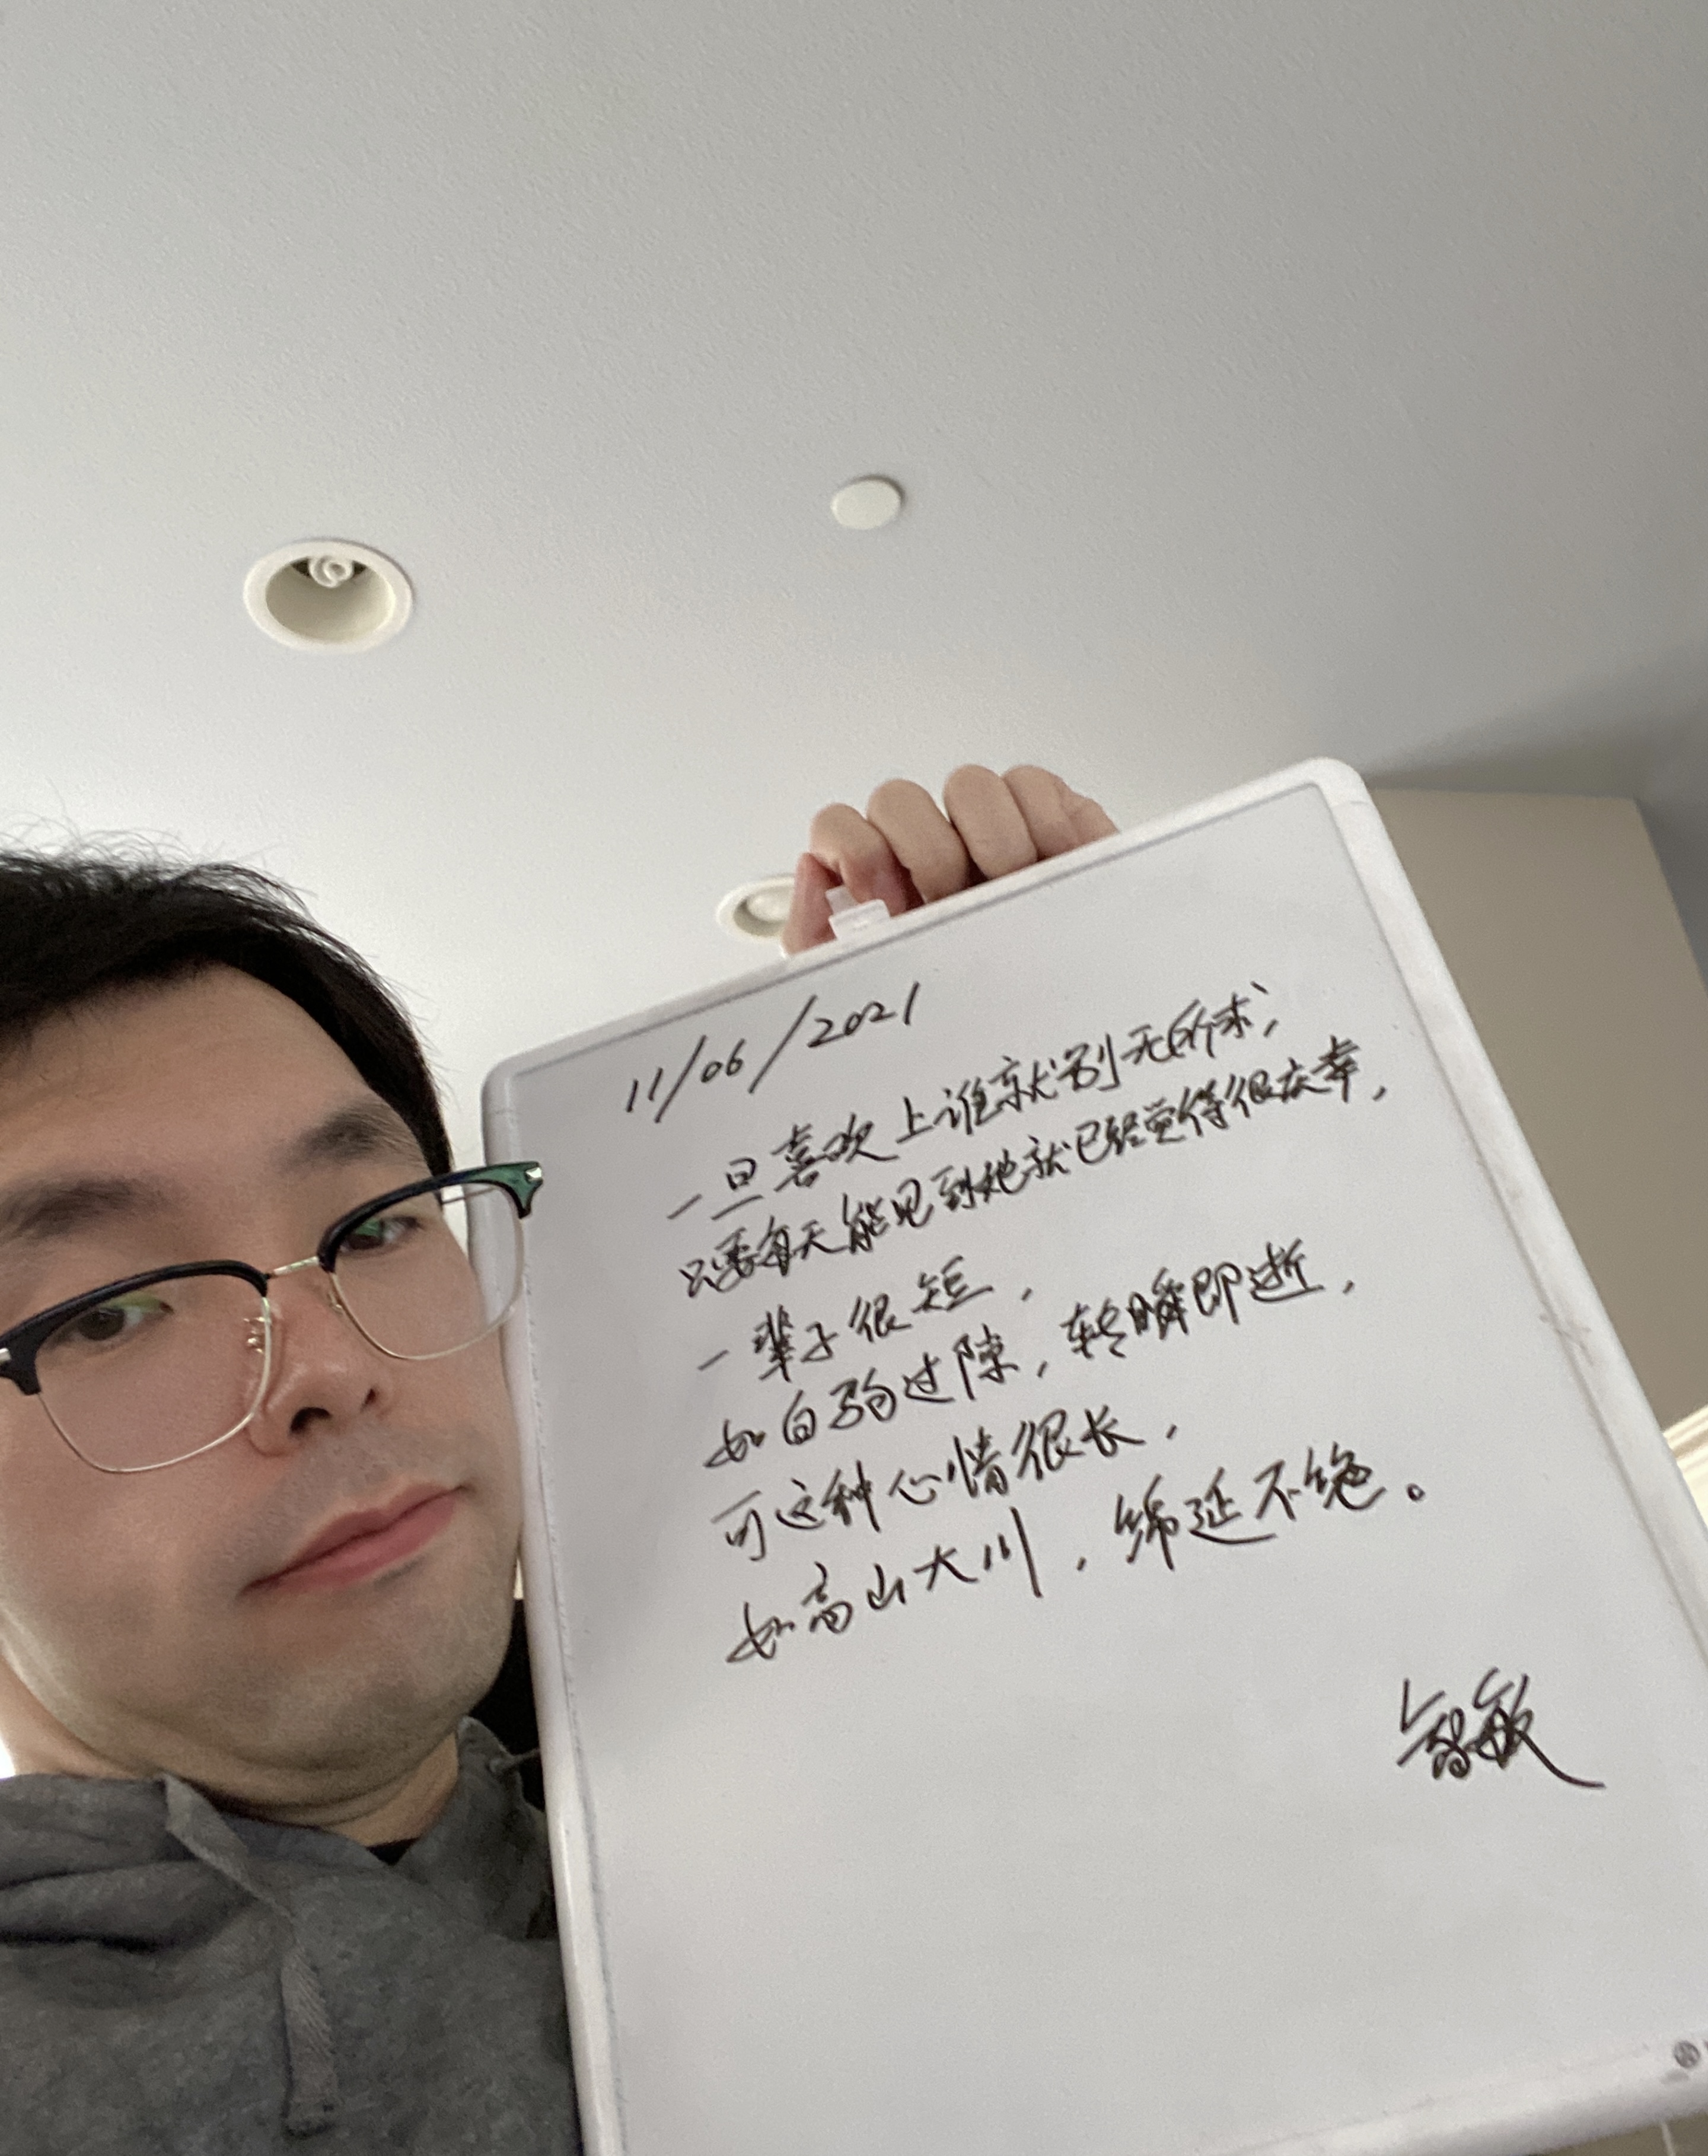 11/06/2021
一旦喜欢上谁就别无所求,
只要每天能见到她就已经觉得很庆幸,
一辈子很短,
如白驹过隙,转瞬即逝,
可这种心情很长,
如高山大川,绵延不绝。
智敏